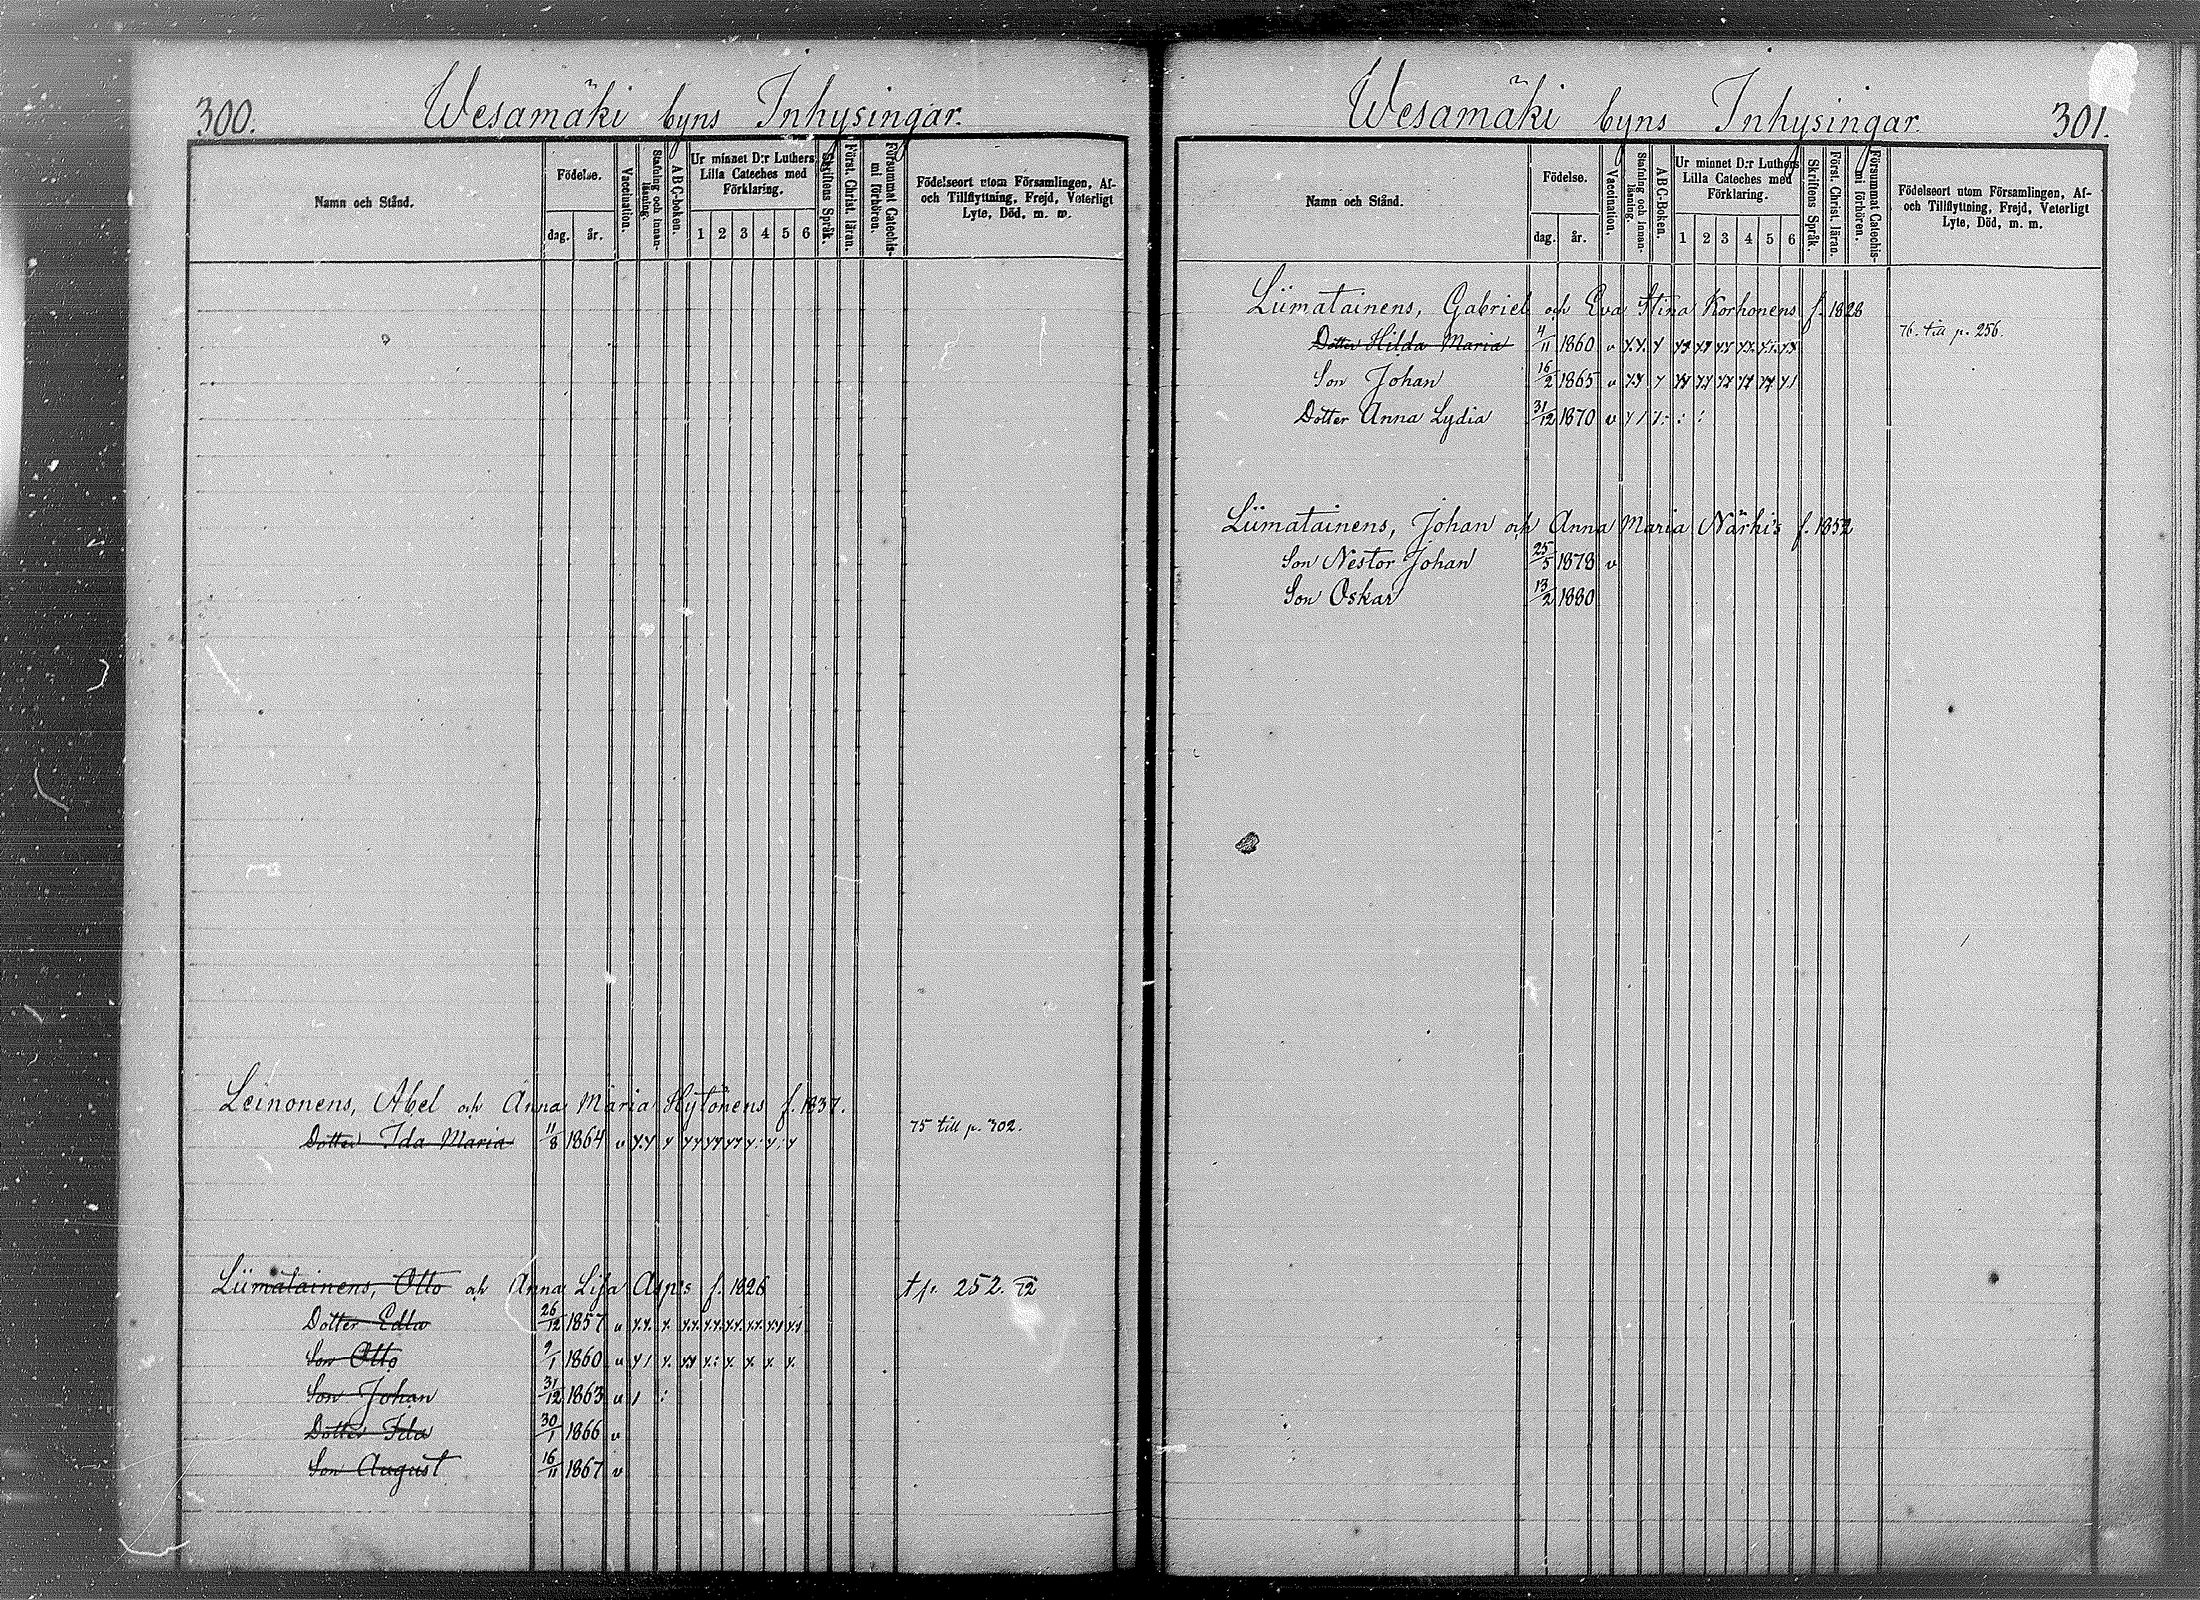 300.
Wesamäki byns Inhysingar.
Namn och Stånd.
Födelse.
dag.
år.
Vaccination.
Stafning och Innanläsning.
ABC-boken.
Ur minnet D:r Luthers Lilla Cateches med Förklaring.
1 2 3 4 5 6
Skriftens Språk.
Först. Christ. läran.
Försummat Catechismi förhören.
Födelseort utom Församlingen, Af-
och Tillflyttning, Frejd, Veterligt
Lyte, Död, m. m.
Leinonens, Abel och Anna Maria Hytönens f. 1837.
Dotter Ida Maria 11/8 1864 v
75 till p. 302.
Liimatainens, Otto och Anna Lisa Asp's f. 1826
t p. 252. 72
Dotter Edla 26/12 1857 v
Son Otto 9/1 1860 v
Son Johan 31/12 1863 v
Dotter Ida 30/1 1866 v
Son August 16/11 1867 v
Wesamäki byns Inhysingar.
301.
Namn och Stånd.
Födelse.
dag.
år.
Vaccination.
Stafning och Innanläsning.
ABC-Boken.
Ur minnet D:r Luthers Lilla Cateches med Förklaring.
1 2 3 4 5 6
Skriftens Språk.
Först. Christ. läran.
Försummat Catechismi förhören.
Födelseort utom Församlingen, Af-
och Tillflyttning, Frejd, Veterligt
Lyte, Död, m. m.
Liimatainens, Gabriel och Eva Stina Korhonens f. 1828
Dotter Hilda Maria 4/11 1860 v
76. till p. 256.
Son Johan 16/2 1865 v
Dotter Anna Lydia 31/12 1870 v
Liimatainens, Johan och Anna Maria Närhi's f. 1852
Son Nestor Johan 25/5 1878 v
Son Oskar 13/2 1880